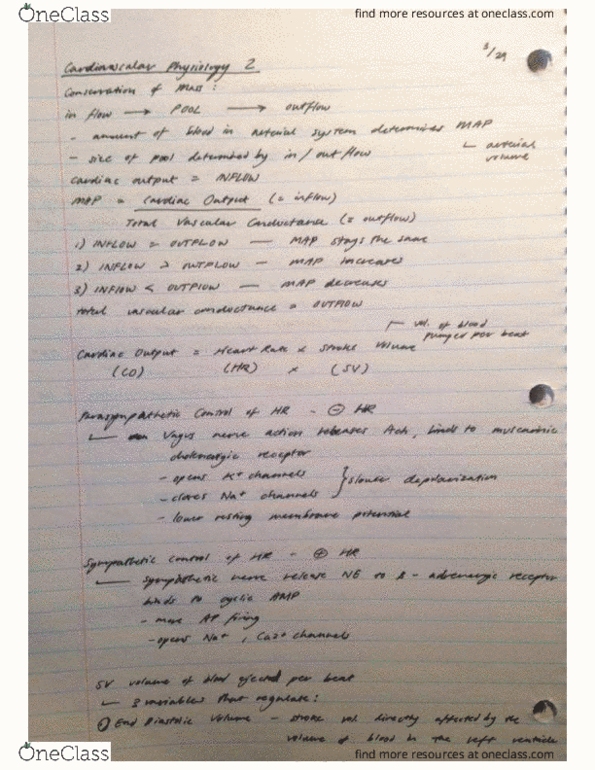 OneClass
find more resources at oneclass.com
3/29
Cardiovascular Physiology 2
Conservation of Mass:
in flow → POOL → outflow
- amount of blood in arterial system determines MAP
└ arterial volume
- size of pool determined by in/outflow
Cardiac output = INFLOW
MAP = Cardiac Output (= inflow)
Total Vascular Conductance (= outflow)
1) INFLOW = OUTFLOW — MAP stays the same
2) INFLOW > OUTFLOW — MAP increases
3) INFLOW < OUTFLOW — MAP decreases
total vascular conductance = OUTFLOW
┌ vol. of blood
pumped per beat
Cardiac Output = Heart Rate x Stroke Volume
(CO) (HR) x (SV)
Parasympathetic Control of HR - ⊖ HR
Vagus nerve action releases Ach, binds to muscarinic
cholenergic receptor
- opens K+ channels
- closes Na+ channels } slower depolarization
- lower resting membrane potential
Sympathetic Control of HR - ⊕ HR
Sympathetic nerve release NE to β - adrenergic receptor
binds to cyclic AMP
- more AP firing
- opens Na+, Ca2+ channels
SV volume of blood ejected per beat
└ 3 variables that regulate:
① End Diastolic Volume - stroke vol. directly affected by the
volume of blood in the left ventricle
OneClass
find more resources at oneclass.com